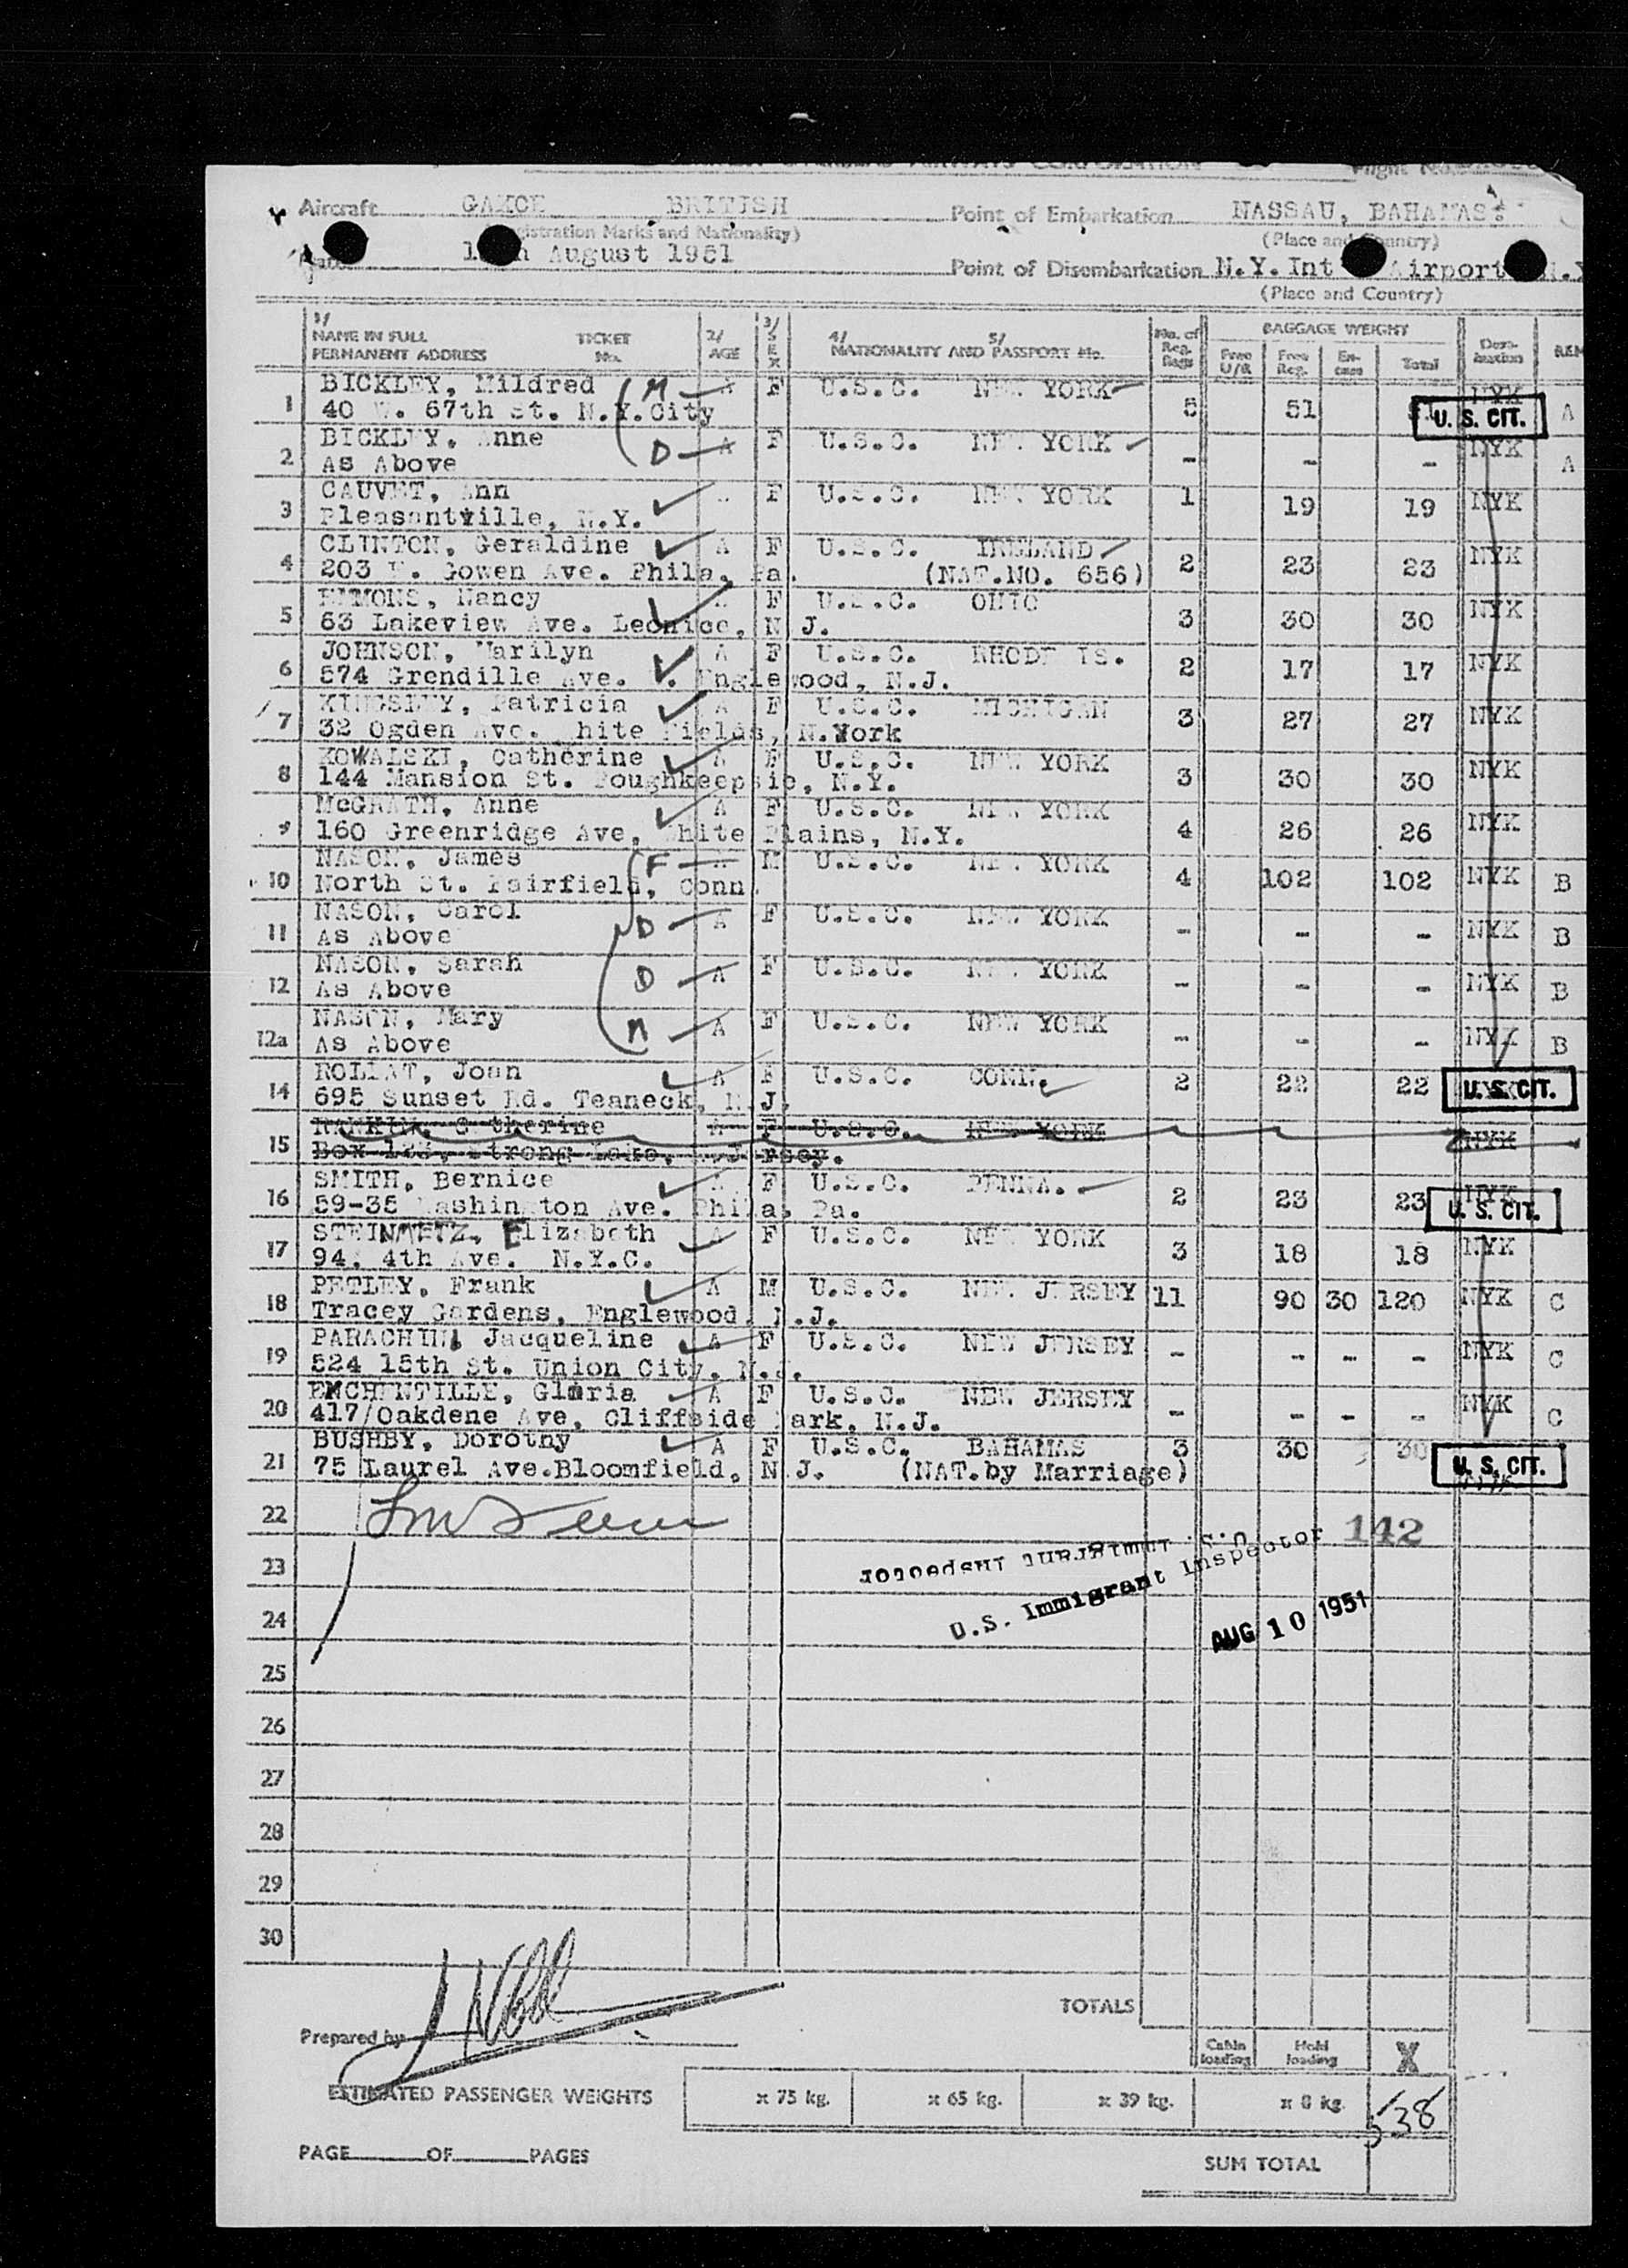 Aircraft BRITISH Point of Embarkation NASSAU, BAHAMAS.
(Registration Marks and Nationality) (Place and Country)
August 1951 Point of Disembarkation N.Y. Int Airport
(Place and Country)
1/ NAME IN FULL TICKET 2/ 3/ SEX 4/ 5/ No. of BAGGAGE WEIGHT Dest-
PERMANENT ADDRESS No. AGE NATIONALITY AND PASSPORT No. Reg. Bags Free U/R Free Reg. Ex-cess Total ination REM
1 BICKLEY, Mildred M A F U.S.C. NEW YORK 5 51 51 NYK A
40 W. 67th St. N.Y.City U. S. CIT.
2 BICKLEY, Anne D A F U.S.C. NEW YORK - - - NYK A
As Above
3 CAUVET, Ann F U.S.C. NEW YORK 1 19 19 NYK
Pleasantville, N.Y.
4 CLINTON, Geraldine A F U.S.C. IRELAND 2 23 23 NYK
203 Gowen Ave. Phila. Pa. (NAT.NO. 656)
5 EMMONS, Nancy F U.S.C. OHIO 3 30 30 NYK
63 Lakeview Ave. N.J.
6 JOHNSON, Marilyn A F U.S.C. RHODE IS. 2 17 17 NYK
574 Grendille Ave. Englewood, N.J.
7 KINGSLEY, Patricia A F U.S.C. MICHIGAN 3 27 27 NYK
32 Ogden Ave. White Fields, N.York
8 KOWALSKI, Catherine A F U.S.C. NEW YORK 3 30 30 NYK
144 Mansion St. Poughkeepsie, N.Y.
9 McGRATH, Anne A F U.S.C. NEW YORK 4 26 26 NYK
160 Greenridge Ave, White Plains, N.Y.
10 NASON, James F A M U.S.C. NEW YORK 4 102 102 NYK B
North St. Fairfield, Conn.
11 NASON, Carol D A F U.S.C. NEW YORK - - - NYK B
As Above
12 NASON, Sarah D A F U.S.C. NEW YORK - - - NYK B
As Above
12a NASON, Mary M A F U.S.C. NEW YORK - - - NYK B
As Above
14 Joan A F U.S.C. CONN. 2 22 22 U. S. CIT.
695 Sunset Rd. Teaneck, N.J.
15 A F U.S.C. NEW YORK NYK
16 SMITH, Bernice F U.S.C. PENNA. 2 23 23 NYK
59-35 Washington Ave. Phila. Pa. U. S. CIT.
17 STEINMETZ, Elizabeth A F U.S.C. NEW YORK 3 18 18 NYK
94. 4th Ave. N.Y.C.
18 PETLEY, Frank A M U.S.C. NEW JERSEY 11 90 30 120 NYK C
Tracey Gardens, Englewood, N.J.
19 PARACHINI, Jacqueline A F U.S.C. NEW JERSEY - -- -- - NYK C
524 15th St. Union City, N.J.
20 Gloria A F U.S.C. NEW JERSEY - - - - NYK C
417/Oakdene Ave, Cliffside Park, N.J.
21 BUSHBY, Dorothy A F U.S.C. BAHAMAS 3 30 30
75 Laurel Ave.Bloomfield, N.J. (NAT.by Marriage) U. S. CIT.
22 142
U.S. Immigrant Inspector
23
U.S. Immigrant Inspector
24 AUG 10 1951
25
26
27
28
29
30
TOTALS
Prepared by
Cabin loading Hold loading X
ESTIMATED PASSENGER WEIGHTS x 75 kg. x 65 kg. x 39 kg. x 8 kg. 538
PAGE OF PAGES SUM TOTAL